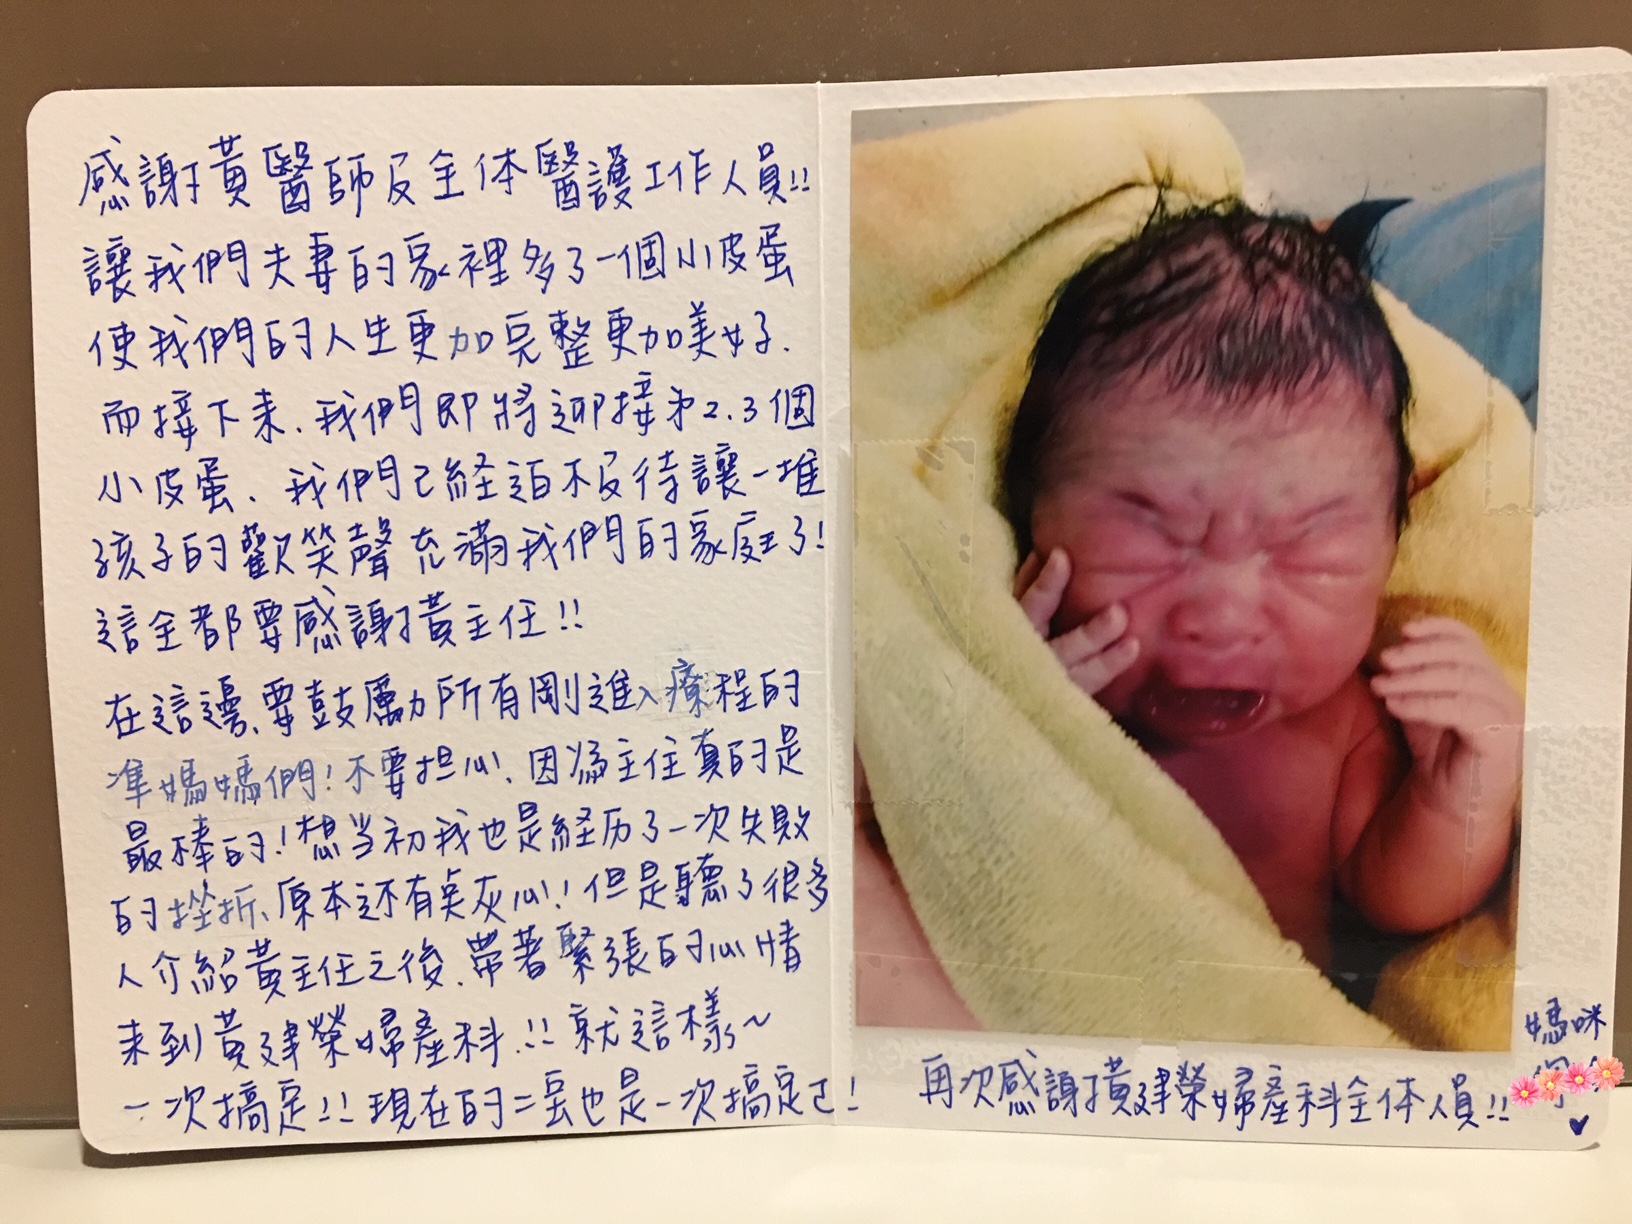 感謝黃醫師及全体醫護工作人員!!
讓我們夫妻的家裡多了一個小皮蛋
使我們的人生更加完整更加美好.
而接下來、我們即將迎接第2.3個
小皮蛋、我們已経迫不及待讓一堆
孩子的歡笑聲充滿我們的家庭了!
這全都要感謝黃主任!!
在這邊、要鼓勵所有剛進入療程的
準媽媽們!不要担心!、因為主任真的是
最棒的!想當初我也是経历了一次失敗
的挫折、原本还有奌灰心!但是聽了很多
人介紹黃主任之後、帶著緊張的心情
來到黃建榮婦產科!!就這樣~
一次搞定!!現在的二寶也是一次搞定!
再次感謝黃建榮婦產科全体人員!!
媽咪